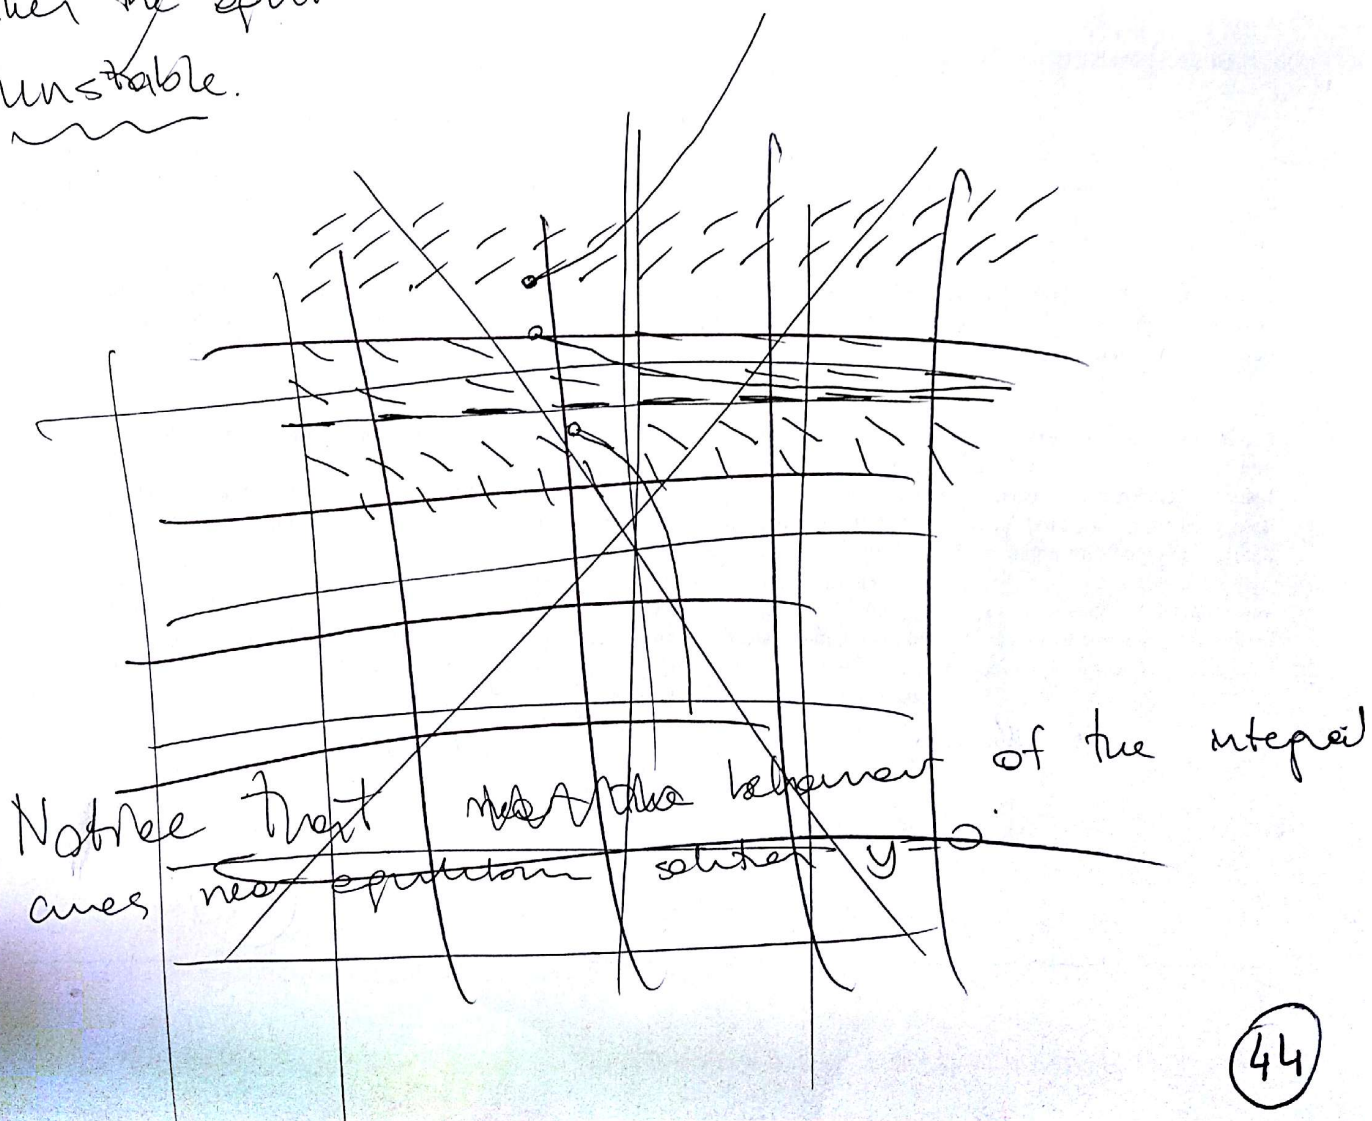 the
unstable.
Notice that the behaviour of the integral
curves near equilibrium solution y=0
44